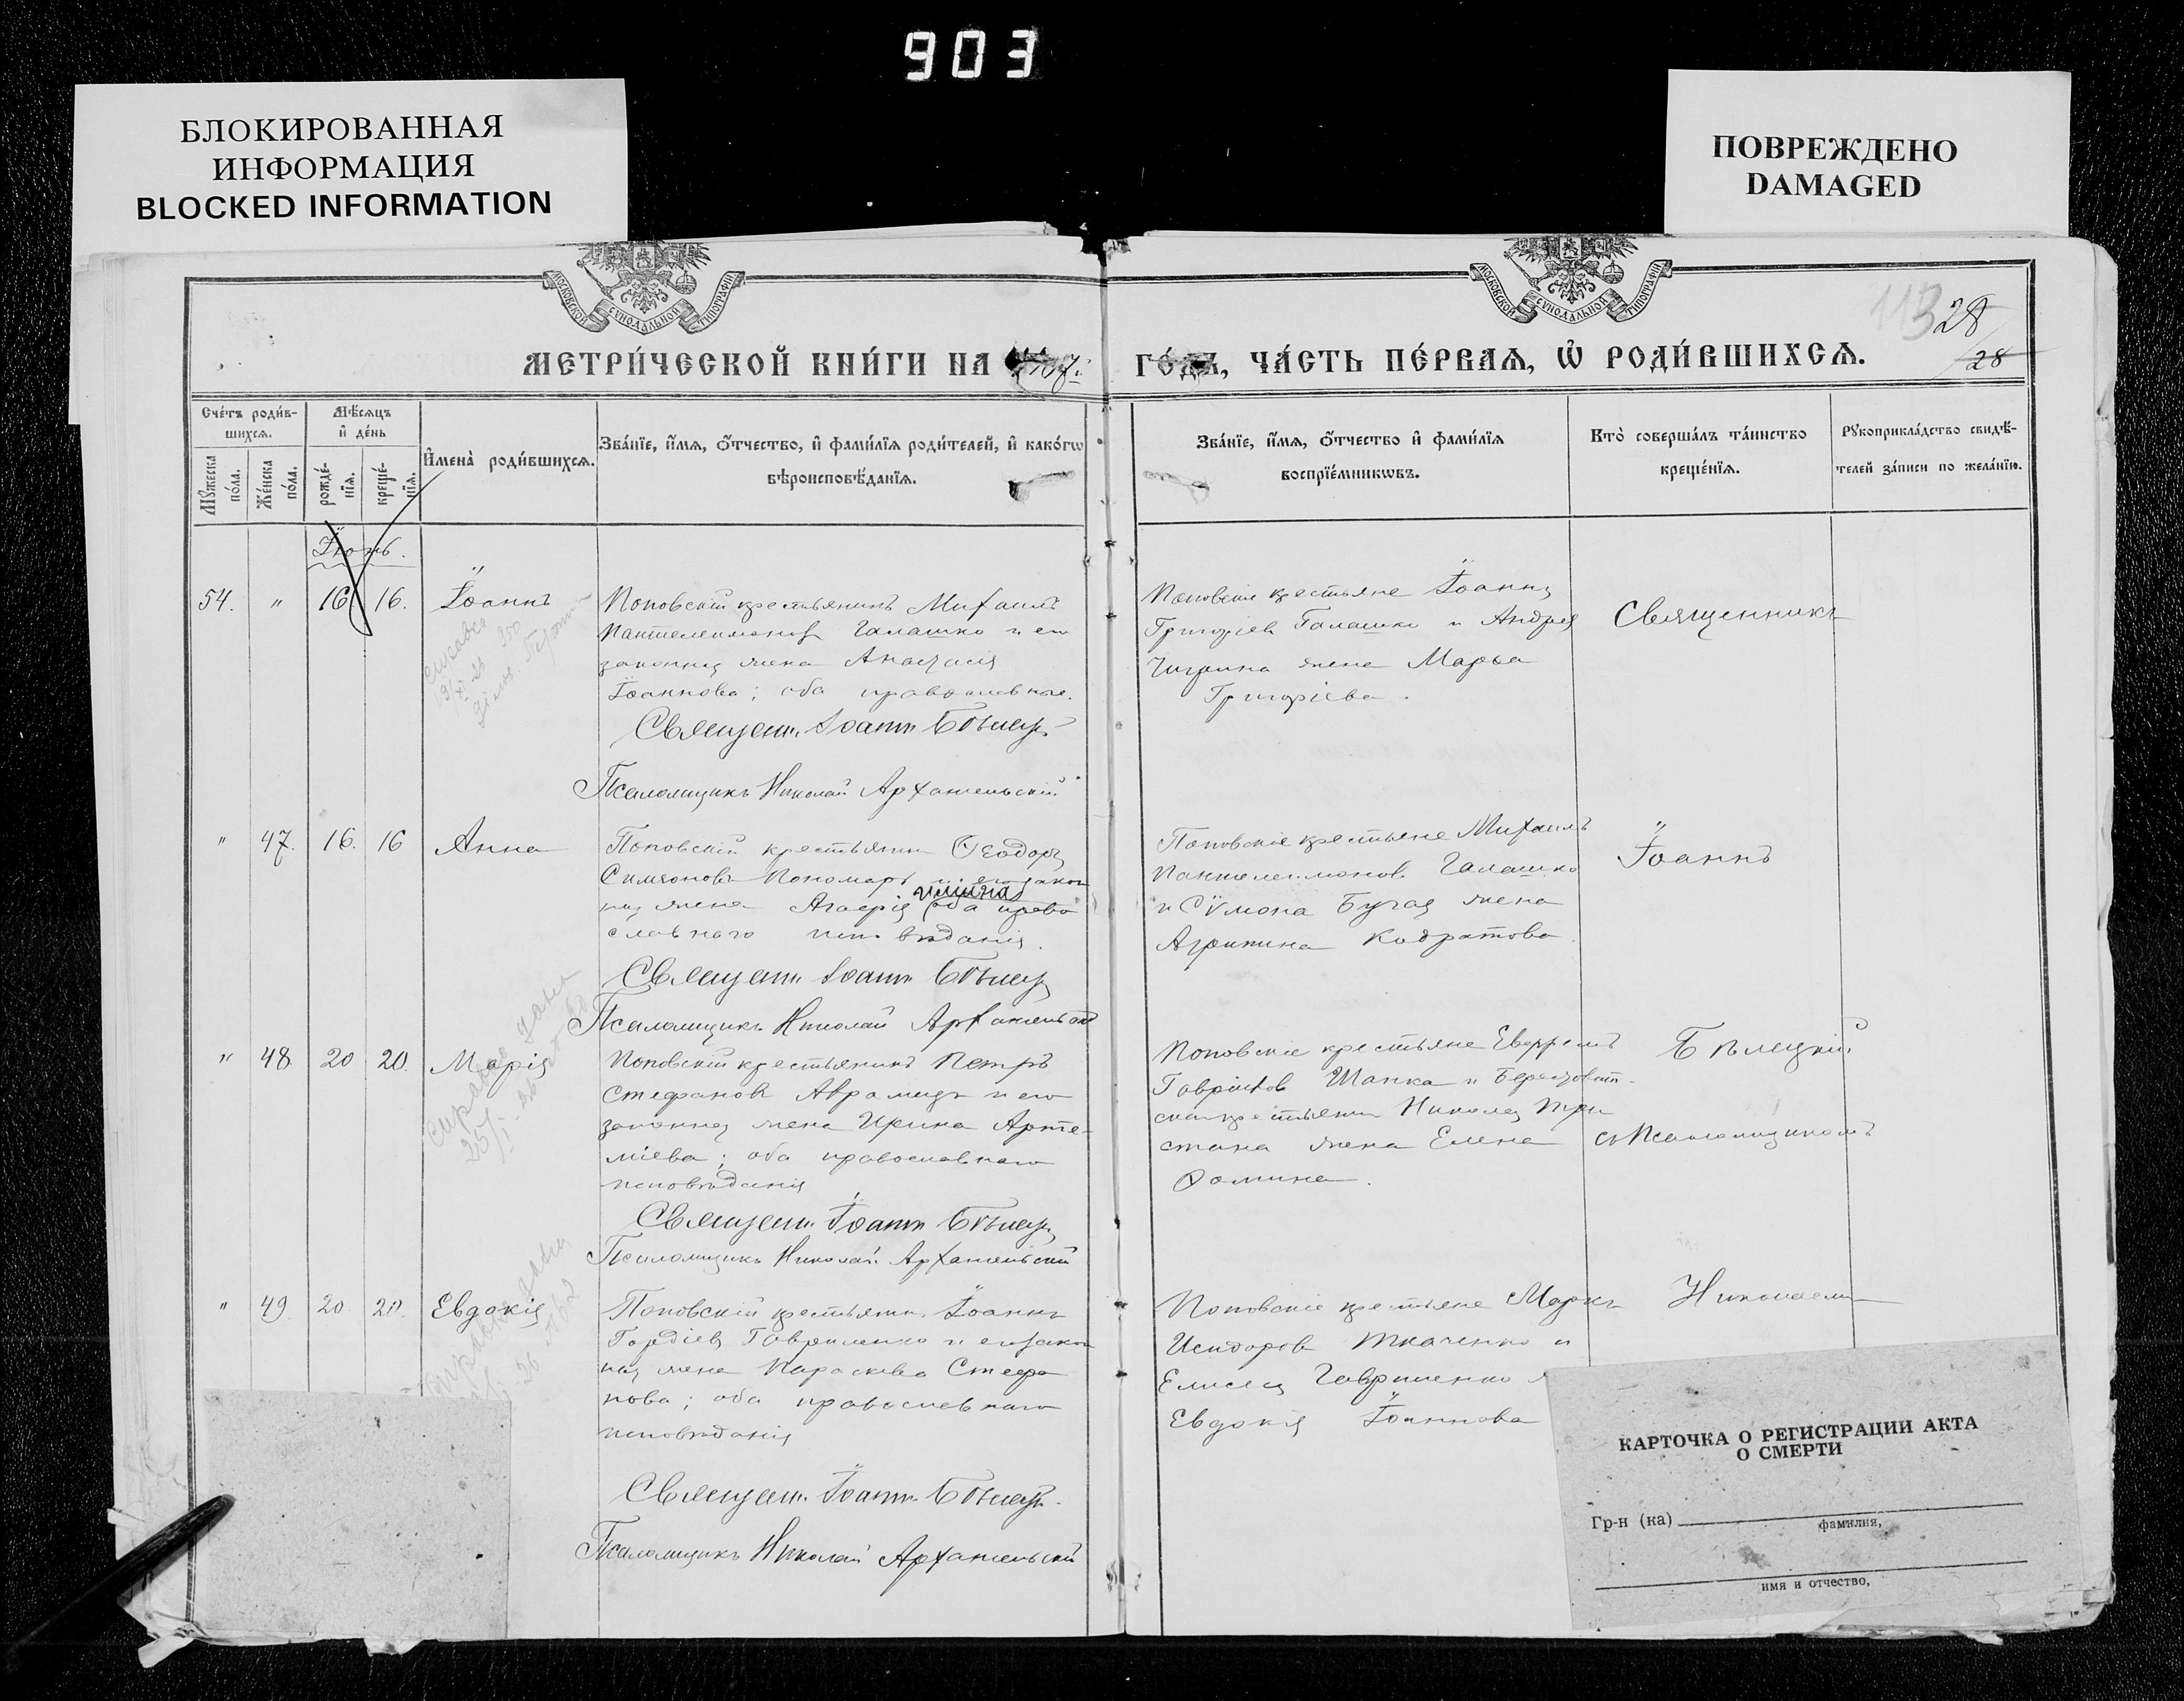 903
БЛОКИРОВАННАЯ
ИНФОРМАЦИЯ
BLOCKED INFORMATION
ПОВРЕЖДЕНО
DAMAGED
МОСКОВСКОЙ СѴНОДАЛЬНОЙ ТИПОГРАФІИ
МОСКОВСКОЙ СѴНОДАЛЬНОЙ ТИПОГРАФІИ
113 28
28
МЕТРИ́ЧЕСКОЙ КНИ́ГИ НА
ГО́ДЪ, ЧА́СТЬ ПЕ́РВАЯ, Ѡ҆ РОДИ́ВШИХСЯ.
Сче́тъ роди́в-
шихся.
Мѣ́сяцъ
и҆ де́нь
Мꙋ́жеска по́ла.
Же́нска по́ла.
рожде́-нїя.
креще́-нїя.
И҆мена̀ роди́вшихся.
Зва́нїе, и҆́мя, ѻ҆́тчество, и҆ фами́лїя роди́телей, и҆ како́гѡ
вѣроисповѣ́данїя.
Зва́нїе, и҆́мя, ѻ҆́тчество и҆ фами́лїя
воспрїе́мникѡвъ.
Кто̀ соверша́лъ та́инство
креще́нїя.
Рꙋкоприкла́дство свидѣ́-
телей за́писи по жела́нїю.
Іюнь.
54. " 16 16. Іоаннъ
Поповскій крестьянинъ Михаилъ
Пантелеимоновъ Галашко и его
законная жена Анастасія
Іоаннова; оба православные.
Священ. Іоаннъ Бѣлецк
Псаломщикъ Николай Архангельскій
Поповскіе крестьяне Іоаннъ
Григоріевъ Галашко и Андрея
жена Марѳа
Григоріева.
Священникъ
" 47. 16. 16 Анна
Поповскій крестьянинъ Ѳеодоръ
Симеоновъ Пономарь и его закон
ная жена Агафія оба право
славнаго исповѣданія.
Священ. Іоаннъ Бѣлецк
Псаломщикъ Николай Архангельскій
Поповскіе крестьяне Михаилъ
Пантелеимоновъ Галашко
и Сѵмона Бугая жена
Агрипина Кодратова
Іоаннъ
" 48. 20 20. Марія
Поповскій крестьянинъ Петръ
Стефановъ Аврамецъ и его
законная жена Ирина Арте-
міева; оба православнаго
исповѣданія
Священ. Іоаннъ Бѣлецк
Псаломщикъ Николай Архангельскій
Поповскіе крестьяне Евфремъ
Гавріиловъ Шапка и
Николая Три
стана жена Елена
Ѳомина.
Бѣлецкій
съ Псаломщикомъ
" 49. 20 20. Евдокія
Поповскій крестьянинъ Іоаннъ
Гордіевъ Гавриленко и его закон
ная жена Параскева Стефа
нова; оба православнаго
исповѣданія
Священ. Іоаннъ Бѣлецк
Псаломщикъ Николай Архангельскій
Поповскіе крестьяне Маркъ
Исидоровъ Ткаченко и
Елисея Гавриленко
Евдокія Іоаннова
Николаемъ
КАРТОЧКА О РЕГИСТРАЦИИ АКТА
О СМЕРТИ
Гр-н (ка)
фамилия,
имя и отчество,